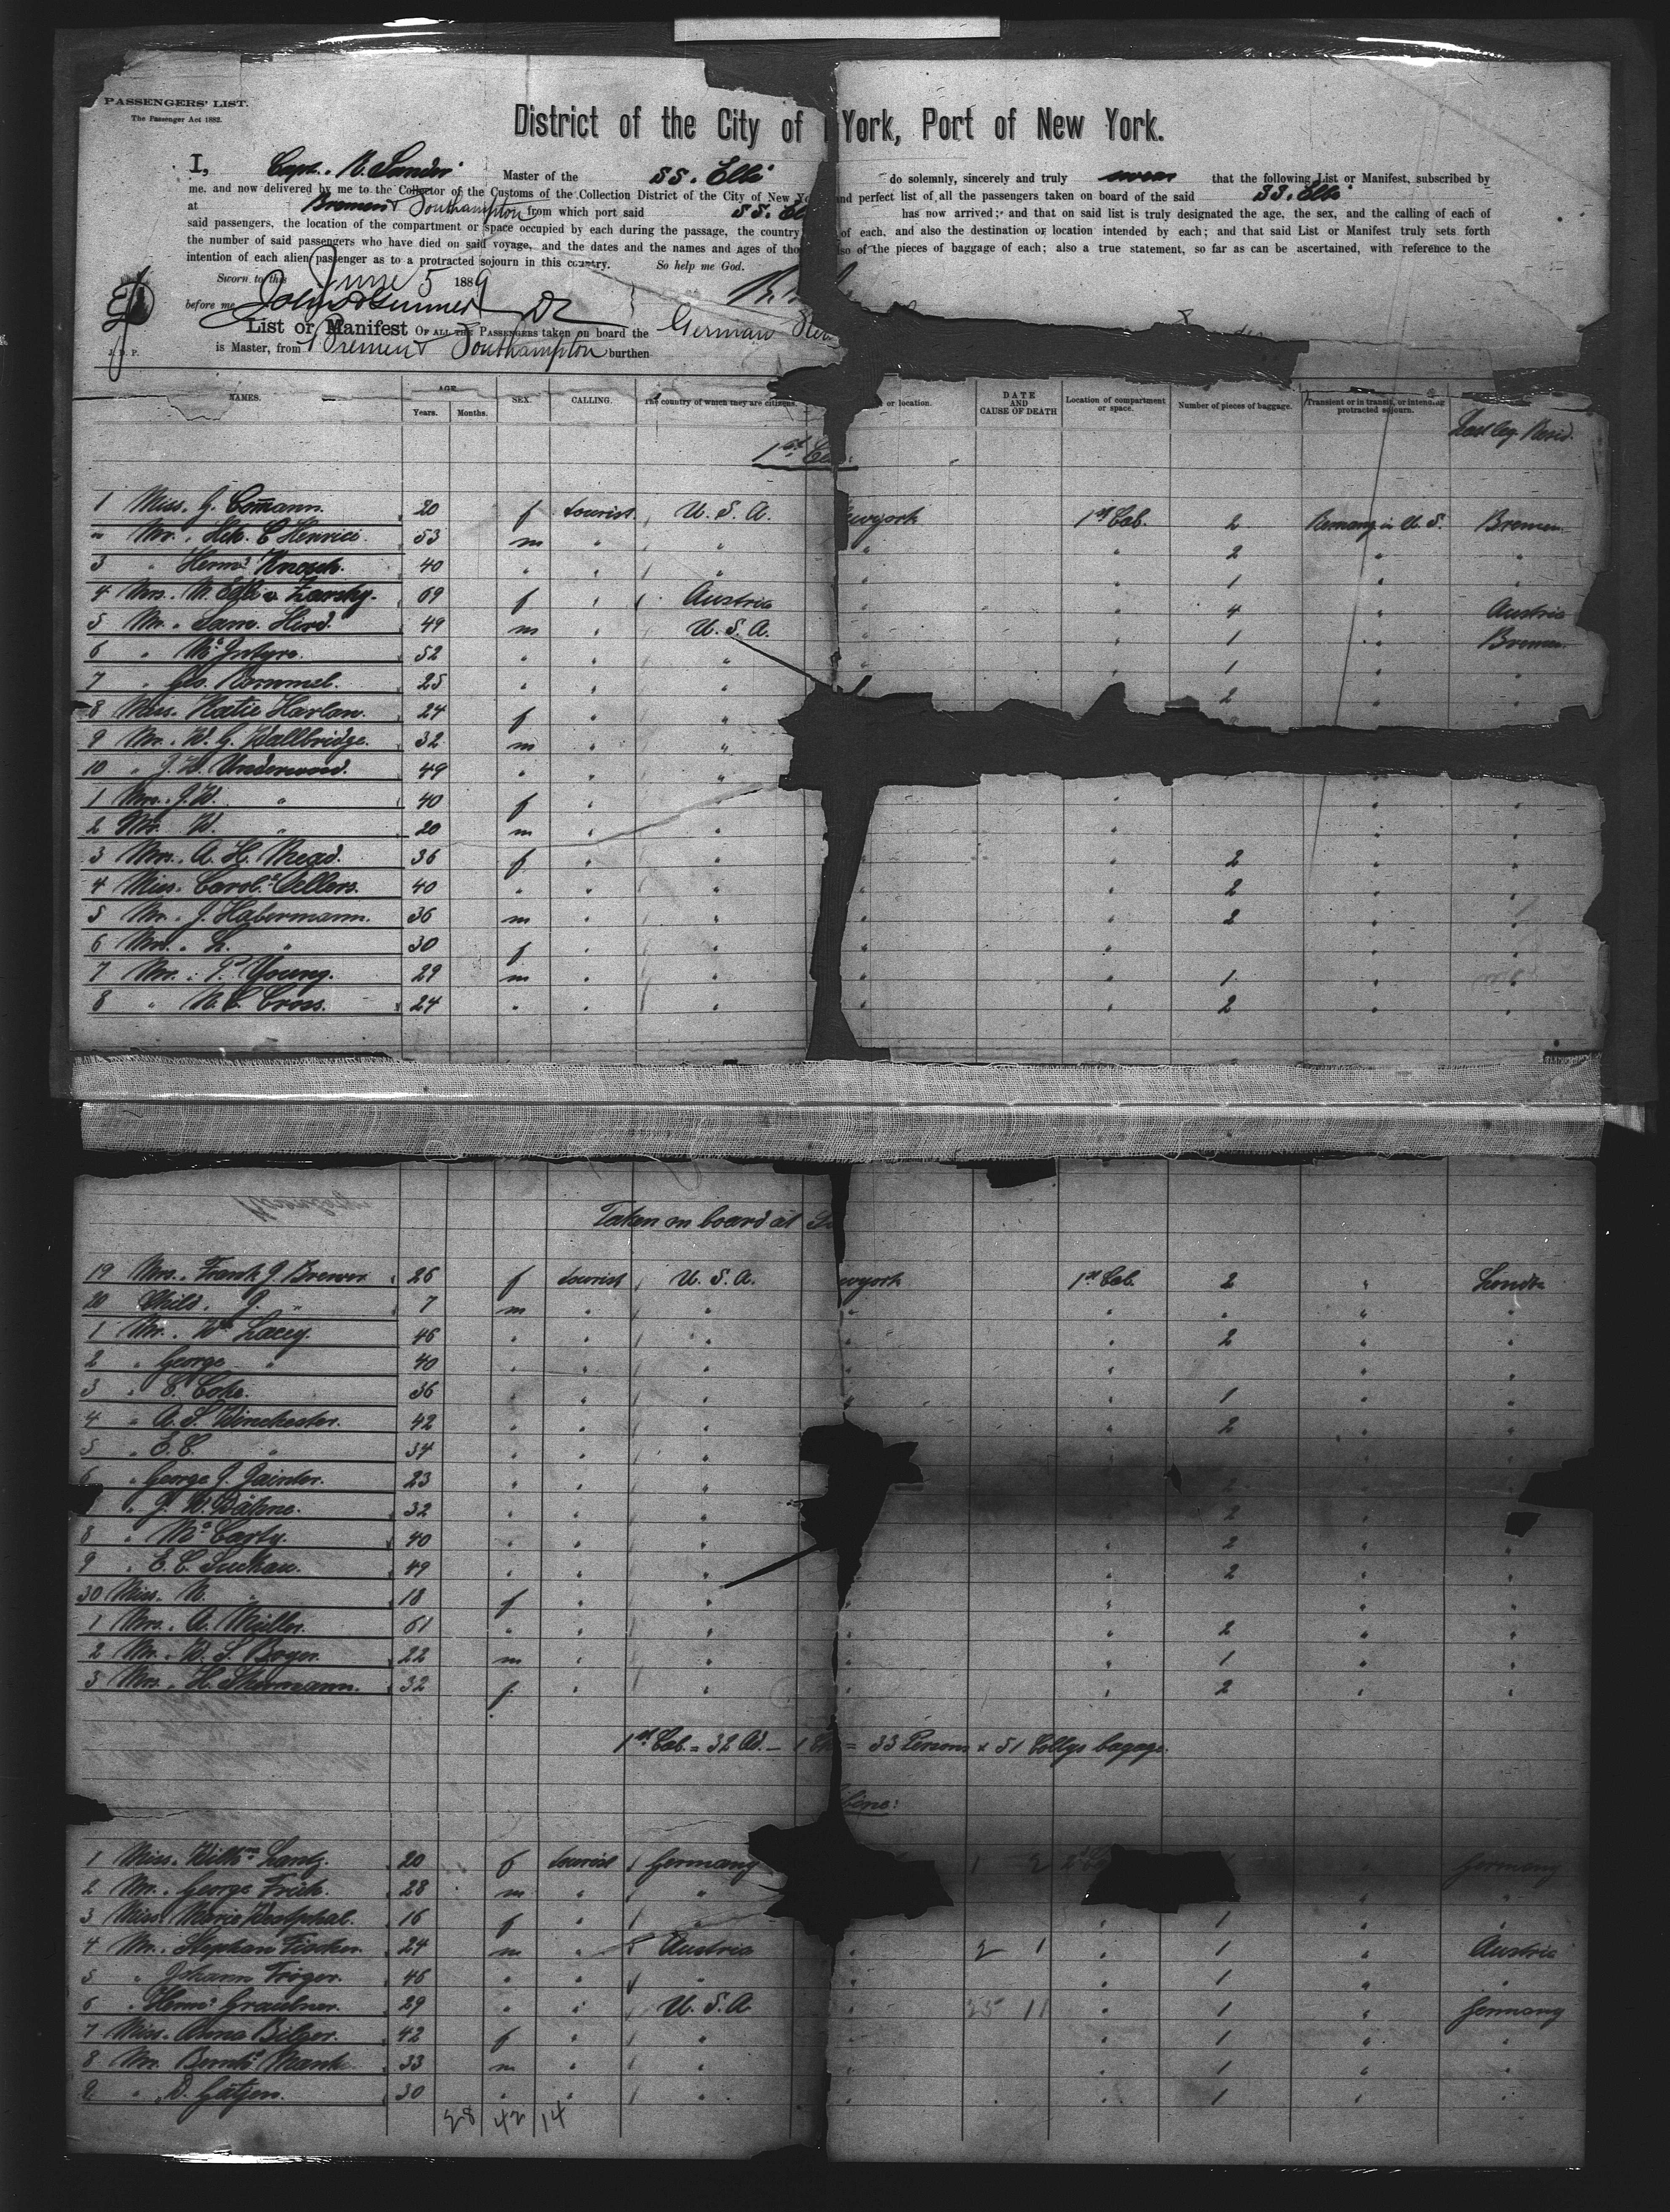 PASSENGERS' LIST.
The Passenger Act 1882.
District of the City of York, Port of New York.
I, Capt. R. Sander Master of the SS. Elbe do solemnly, sincerely and truly swear that the following List or Manifest, subscribed by
me, and now delivered by me to the Collector of the Customs of the Collection District of the City of New and perfect list of all the passengers taken on board of the said SS. Elbe
at Bremen & Southampton from which port said SS. has now arrived; and that on said list is truly designated the age, the sex, and the calling of each of
said passengers, the location of the compartment or space occupied by each during the passage, the country of each, and also the destination or location intended by each; and that said List or Manifest truly sets forth
the number of said passengers who have died on said voyage, and the dates and the names and ages of of the pieces of baggage of each; also a true statement, so far as can be ascertained, with reference to the
intention of each alien passenger as to a protracted sojourn in this country. So help me God.
Sworn to this June 5 1889
before me
List or Manifest OF ALL THE PASSENGERS taken on board the German
J. D. P. is Master, from Bremen & Southampton burthen
NAMES. AGE. Years. Months. SEX. CALLING. The country of which they are citizens. or location. DATE AND CAUSE OF DEATH Location of compartment or space. Number of pieces of baggage. Transient or in transit, or intending protracted sojourn.
Last leg. Resid.
1st
1 Miss. G. Comann. 20 f tourist U. S. A. 1st Cab. 2 U. S. Bremen
" Mr. Heh. C Henrici. 53 m " " " " 2 " "
3 " Herm. Knosch. 40 " " " " " 1 " "
4 Mrs. M. Zarsky. 69 f " Austria " " 4 " Austria
5 Mr. Sam. Hird. 49 m " U. S. A. " " 1 " Bremen
6 " McIntyre. 52 " " " " " 1 " "
7 " Geo. Rommel. 25 " " " 2 " "
8 Miss. Katie Harlan. 24 f " "
9 Mr. W. G. Wallbridge. 32 m " "
10 " J. W. Underwood. 49 " " "
1 Mrs. J. W. " 40 f " " " "
2 Mr. W. " 20 m " " " " "
3 Mrs. A. H. Mead. 36 f " " " " 2 " "
4 Miss. Carol. Oellers. 40 " " " " " 2 " "
5 Mr. J. Habermann. 36 m " " " " 2 " "
6 Mrs. L. " 30 f " " " " " "
7 Mr. P. Young. 29 m " " " " 1 " "
8 " N. C. Cross. 24 " " " " " 2 " "
Taken on board at
19 Mrs. Frank J. Brewer 26 f tourist U. S. A. 1st Cab. 2 " London
20 Child. J. " 7 m " " " " " " "
1 Mr. Wm Lacey. 46 " " " " " 2 " "
2 " George " 40 " " " " " " "
3 " C. Coke. 36 " " " " " 1 " "
4 " A. S. Winchester. 42 " " " " 2 " "
5 " E. C. " 34 " " " " " "
6 " George J. Jainter. 23 " " " 2 " "
" J. W. Bähne. 32 " " " 2 " "
8 " McCarty. 40 " " " " 2 " "
9 " E. C. Suckau. 49 " " " " 2 " "
30 Miss. N. " 18 f " " " " " "
1 Mrs. A. Müller. 61 " " " " " 2 " "
2 Mr. W. S. Boyer. 22 m " " " " 1 " "
3 Mrs. H. 32 f " " " " 2 " "
1st Cab. = 32 Ad. - 1 = 33 Persons & 51 Collys bagage.
1 Miss. Lantz. 20 f tourist Germany Germany
2 Mr. George Frick. 28 m " " " "
3 Miss. Marie Westphal. 16 f " " " 1 " "
4 Mr. Stephan Fischer. 24 m " Austria " 2 1 " 1 " Austria
5 " Johann Tröger. 46 " " " " " 1 " "
6 " Herm. Graubner. 29 " " U. S. A. " 25 11 " 1 " Germany
7 Miss. Anna Bilger. 42 f " " " " 1 " "
8 Mr. Bernh. 33 m " " " " 1 " "
9 " D. Gätjen. 30 " " " " " 1 " "
28 / 42 / 14